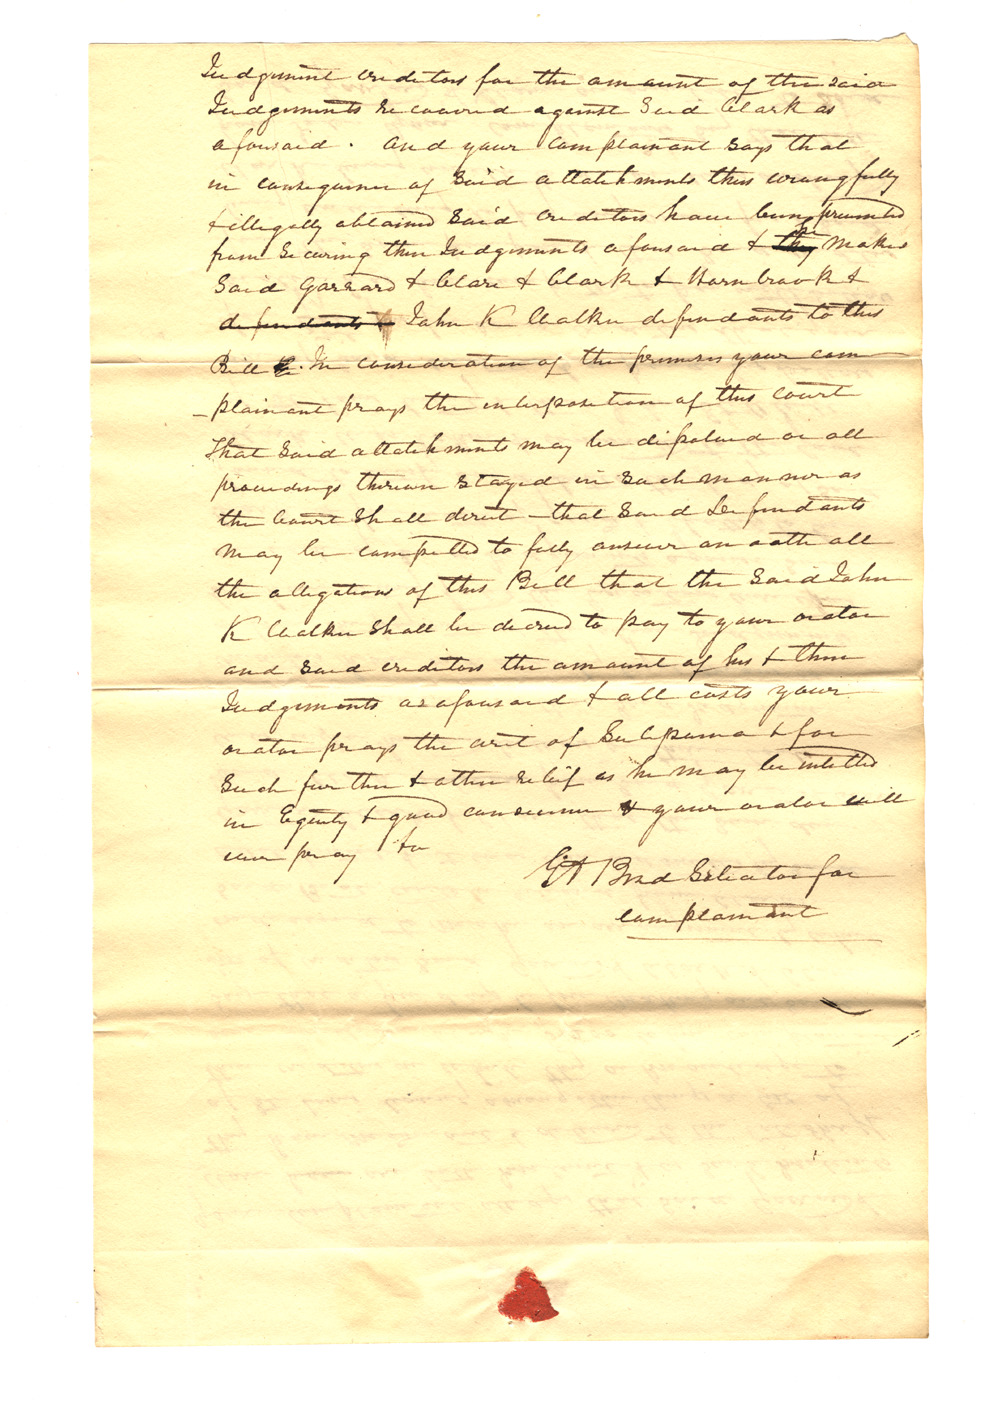 Judgement creditors for the amount of the said
Judgements recovered against Said Clark as
aforesaid. And your Complainant Says that
in consequence of Said attatchments thus wrongfully
& illegally obtained Said Creditors have been prevented
from Securing their Judgements aforesaid & he makes
Said Garrard & Clark & Hornbrook &
defendants & John K Chalker defendants to this
Bill. In consideration of the premises your com
-plainant prays the interposition of this court
That Said attatchments may be disolved or all
proceedings thereon Stayed in Such mannor as
the Court Shall direct - that Said Defendants
may be compelled to fully answer on oath all
the allegations of this Bill that the Said John
K Chalker Shall be decreed to pay to your orator
and Said creditors the amount of his & their
Judgements as aforesaid & all costs your
orator prays the writ of Subpoena & for
Such further & other relief as he may be intitled
in Equity & good conscience & your orator will
ever pray &c
Solicitor for
complainant